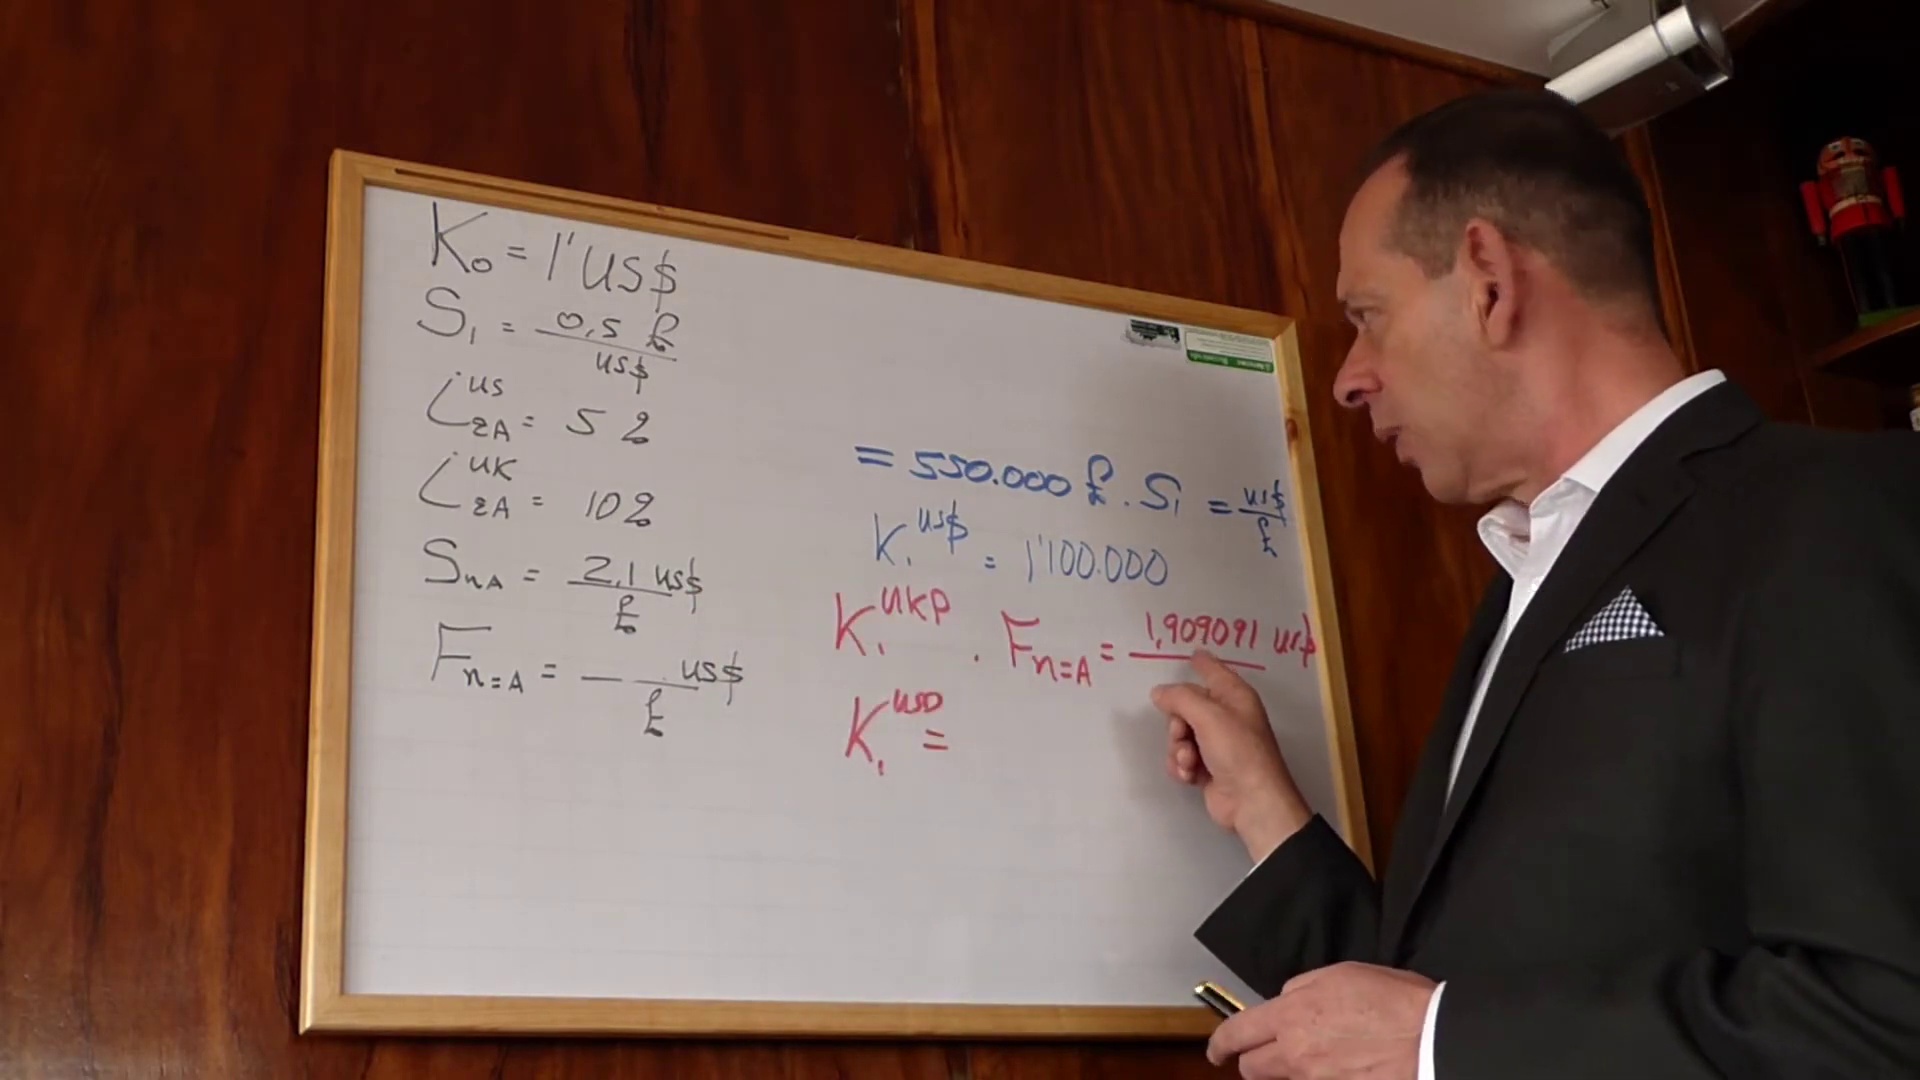 K₀ = 1' US$
S₁ = 0,5 £ / US$
i US ZA = 5 %
i UK ZA = 10 %
SnA = 2,1 US$ / £
Fn=A = — . US$ / £
= 550.000 £ . S₁ = US$ / £
K₁ US$ = 1'100.000
K₁ UKP . Fn=A = 1,909091 US$
K₁ USD =